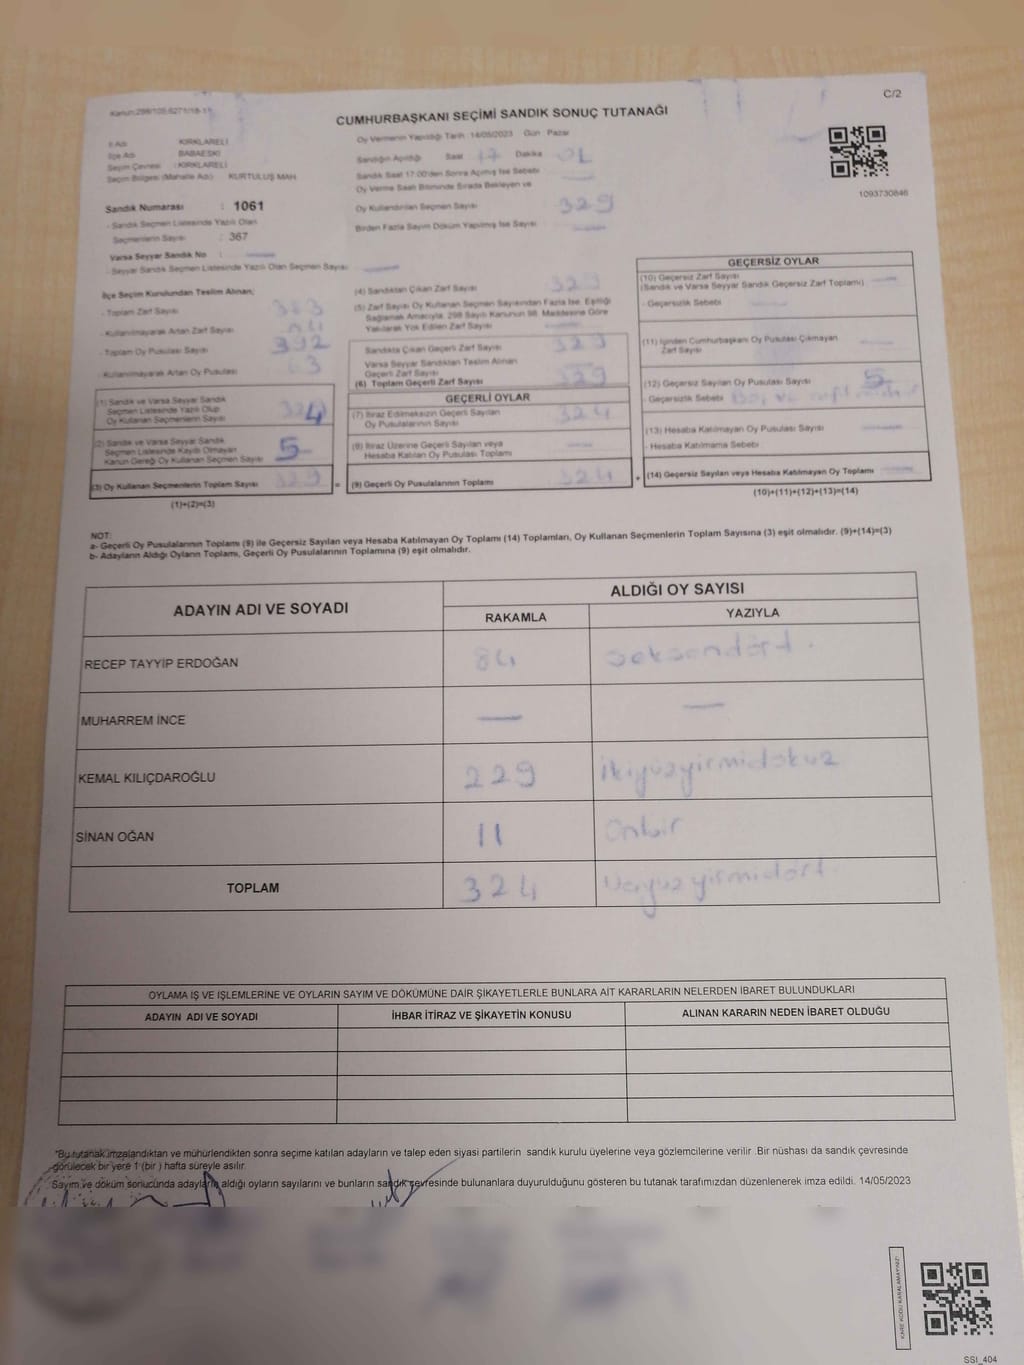 C/2
Kanun:298/105 6271/18-11
CUMHURBAŞKANI SEÇİMİ SANDIK SONUÇ TUTANAĞI
İl Adı KIRKLARELİ
İlçe Adı BABAESKİ
Seçim Çevresi : KIRKLARELİ
Seçim Bölgesi (Mahalle Adı) KURTULUŞ MAH.
Oy Vermenin Yapıldığı Tarih :14/05/2023 Gün Pazar
Sandığın Açıldığı Saat 17 Dakika
Sandık Saat 17:00'den Sonra Açılmış İse Sebebi
Oy Verme Saati Bitiminde Sırada Bekleyen ve
Oy Kullandırılan Seçmen Sayısı 329
Birden Fazla Sayım Döküm Yapılmış İse Sayısı
1093730846
Sandık Numarası : 1061
- Sandık Seçmen Listesinde Yazılı Olan
Seçmenlerin Sayısı : 367
Varsa Seyyar Sandık No :
- Seyyar Sandık Seçmen Listesinde Yazılı Olan Seçmen Sayısı
İlçe Seçim Kurulundan Teslim Alınan;
- Toplam Zarf Sayısı 383
- Kullanılmayarak Artan Zarf Sayısı
- Toplam Oy Pusulası Sayısı 392
- Kullanılmayarak Artan Oy Pusulası 63
(1) Sandık ve Varsa Seyyar Sandık
Seçmen Listesinde Yazılı Olup
Oy Kullanan Seçmenlerin Sayısı 324
(2) Sandık ve Varsa Seyyar Sandık
Seçmen Listesinde Kayıtlı Olmayan
Kanun Gereği Oy Kullanan Seçmen Sayısı 5
(3) Oy Kullanan Seçmenlerin Toplam Sayısı 329
(1)+(2)=(3)
(4) Sandıktan Çıkan Zarf Sayısı 329
(5) Zarf Sayısı Oy Kullanan Seçmen Sayısından Fazla İse, Eşitliği
Sağlamak Amacıyla, 298 Sayılı Kanunun 98. Maddesine Göre
Yakılarak Yok Edilen Zarf Sayısı
Sandıkta Çıkan Geçerli Zarf Sayısı 329
Varsa Seyyar Sandıktan Teslim Alınan
Geçerli Zarf Sayısı
(6) Toplam Geçerli Zarf Sayısı 329
GEÇERLİ OYLAR
(7) İtiraz Edilmeksizin Geçerli Sayılan
Oy Pusulalarının Sayısı 324
(8) İtiraz Üzerine Geçerli Sayılan veya
Hesaba Katılan Oy Pusulası Toplamı
= (9) Geçerli Oy Pusulalarının Toplamı 324
GEÇERSİZ OYLAR
(10) Geçersiz Zarf Sayısı
(Sandık ve Varsa Seyyar Sandık Geçersiz Zarf Toplamı)
- Geçersizlik Sebebi
(11) İçinden Cumhurbaşkanı Oy Pusulası Çıkmayan
Zarf Sayısı
(12) Geçersiz Sayılan Oy Pusulası Sayısı 5
- Geçersizlik Sebebi
(13) Hesaba Katılmayan Oy Pusulası Sayısı
- Hesaba Katılmama Sebebi
+ (14) Geçersiz Sayılan veya Hesaba Katılmayan Oy Toplamı
(10)+(11)+(12)+(13)=(14)
NOT:
a- Geçerli Oy Pusulalarının Toplamı (9) ile Geçersiz Sayılan veya Hesaba Katılmayan Oy Toplamı (14) Toplamları, Oy Kullanan Seçmenlerin Toplam Sayısına (3) eşit olmalıdır. (9)+(14)=(3)
b- Adayların Aldığı Oyların Toplamı, Geçerli Oy Pusulalarının Toplamına (9) eşit olmalıdır.
ADAYIN ADI VE SOYADI
ALDIĞI OY SAYISI
RAKAMLA YAZIYLA
RECEP TAYYİP ERDOĞAN 84 seksendört.
MUHARREM İNCE — —
KEMAL KILIÇDAROĞLU 229 ikiyüzyirmidokuz
SİNAN OĞAN 11 Onbir
TOPLAM 324 Üçyüzyirmidört.
OYLAMA İŞ VE İŞLEMLERİNE VE OYLARIN SAYIM VE DÖKÜMÜNE DAİR ŞİKAYETLERLE BUNLARA AİT KARARLARIN NELERDEN İBARET BULUNDUKLARI
ADAYIN ADI VE SOYADI İHBAR İTİRAZ VE ŞİKAYETİN KONUSU ALINAN KARARIN NEDEN İBARET OLDUĞU
*Bu tutanak imzalandıktan ve mühürlendikten sonra seçime katılan adayların ve talep eden siyasi partilerin sandık kurulu üyelerine veya gözlemcilerine verilir. Bir nüshası da sandık çevresinde
görülecek bir yere 1 (bir ) hafta süreyle asılır.
Sayım ve döküm sonucunda adayların aldığı oyların sayılarını ve bunların sandık çevresinde bulunanlara duyurulduğunu gösteren bu tutanak tarafımızdan düzenlenerek imza edildi. 14/05/2023
KARE KODU KARALAMAYINIZ!
SSI_404